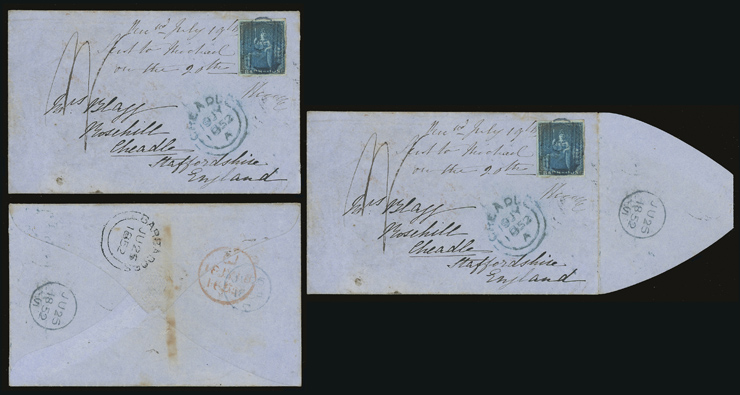 July 19th
sent to Michael
on the 20th
Mrs Blagg
Rosehill
Cheadle
Staffordshire
England
CHEADLE
19 JY
1852
A
BARBADOS
JU 25
1852
JU 25
1852
July 19th
sent to Michael
on the 20th
Mrs Blagg
Rosehill
Cheadle
Staffordshire
England
CHEADLE
19 JY
1852
A
JU 25
1852